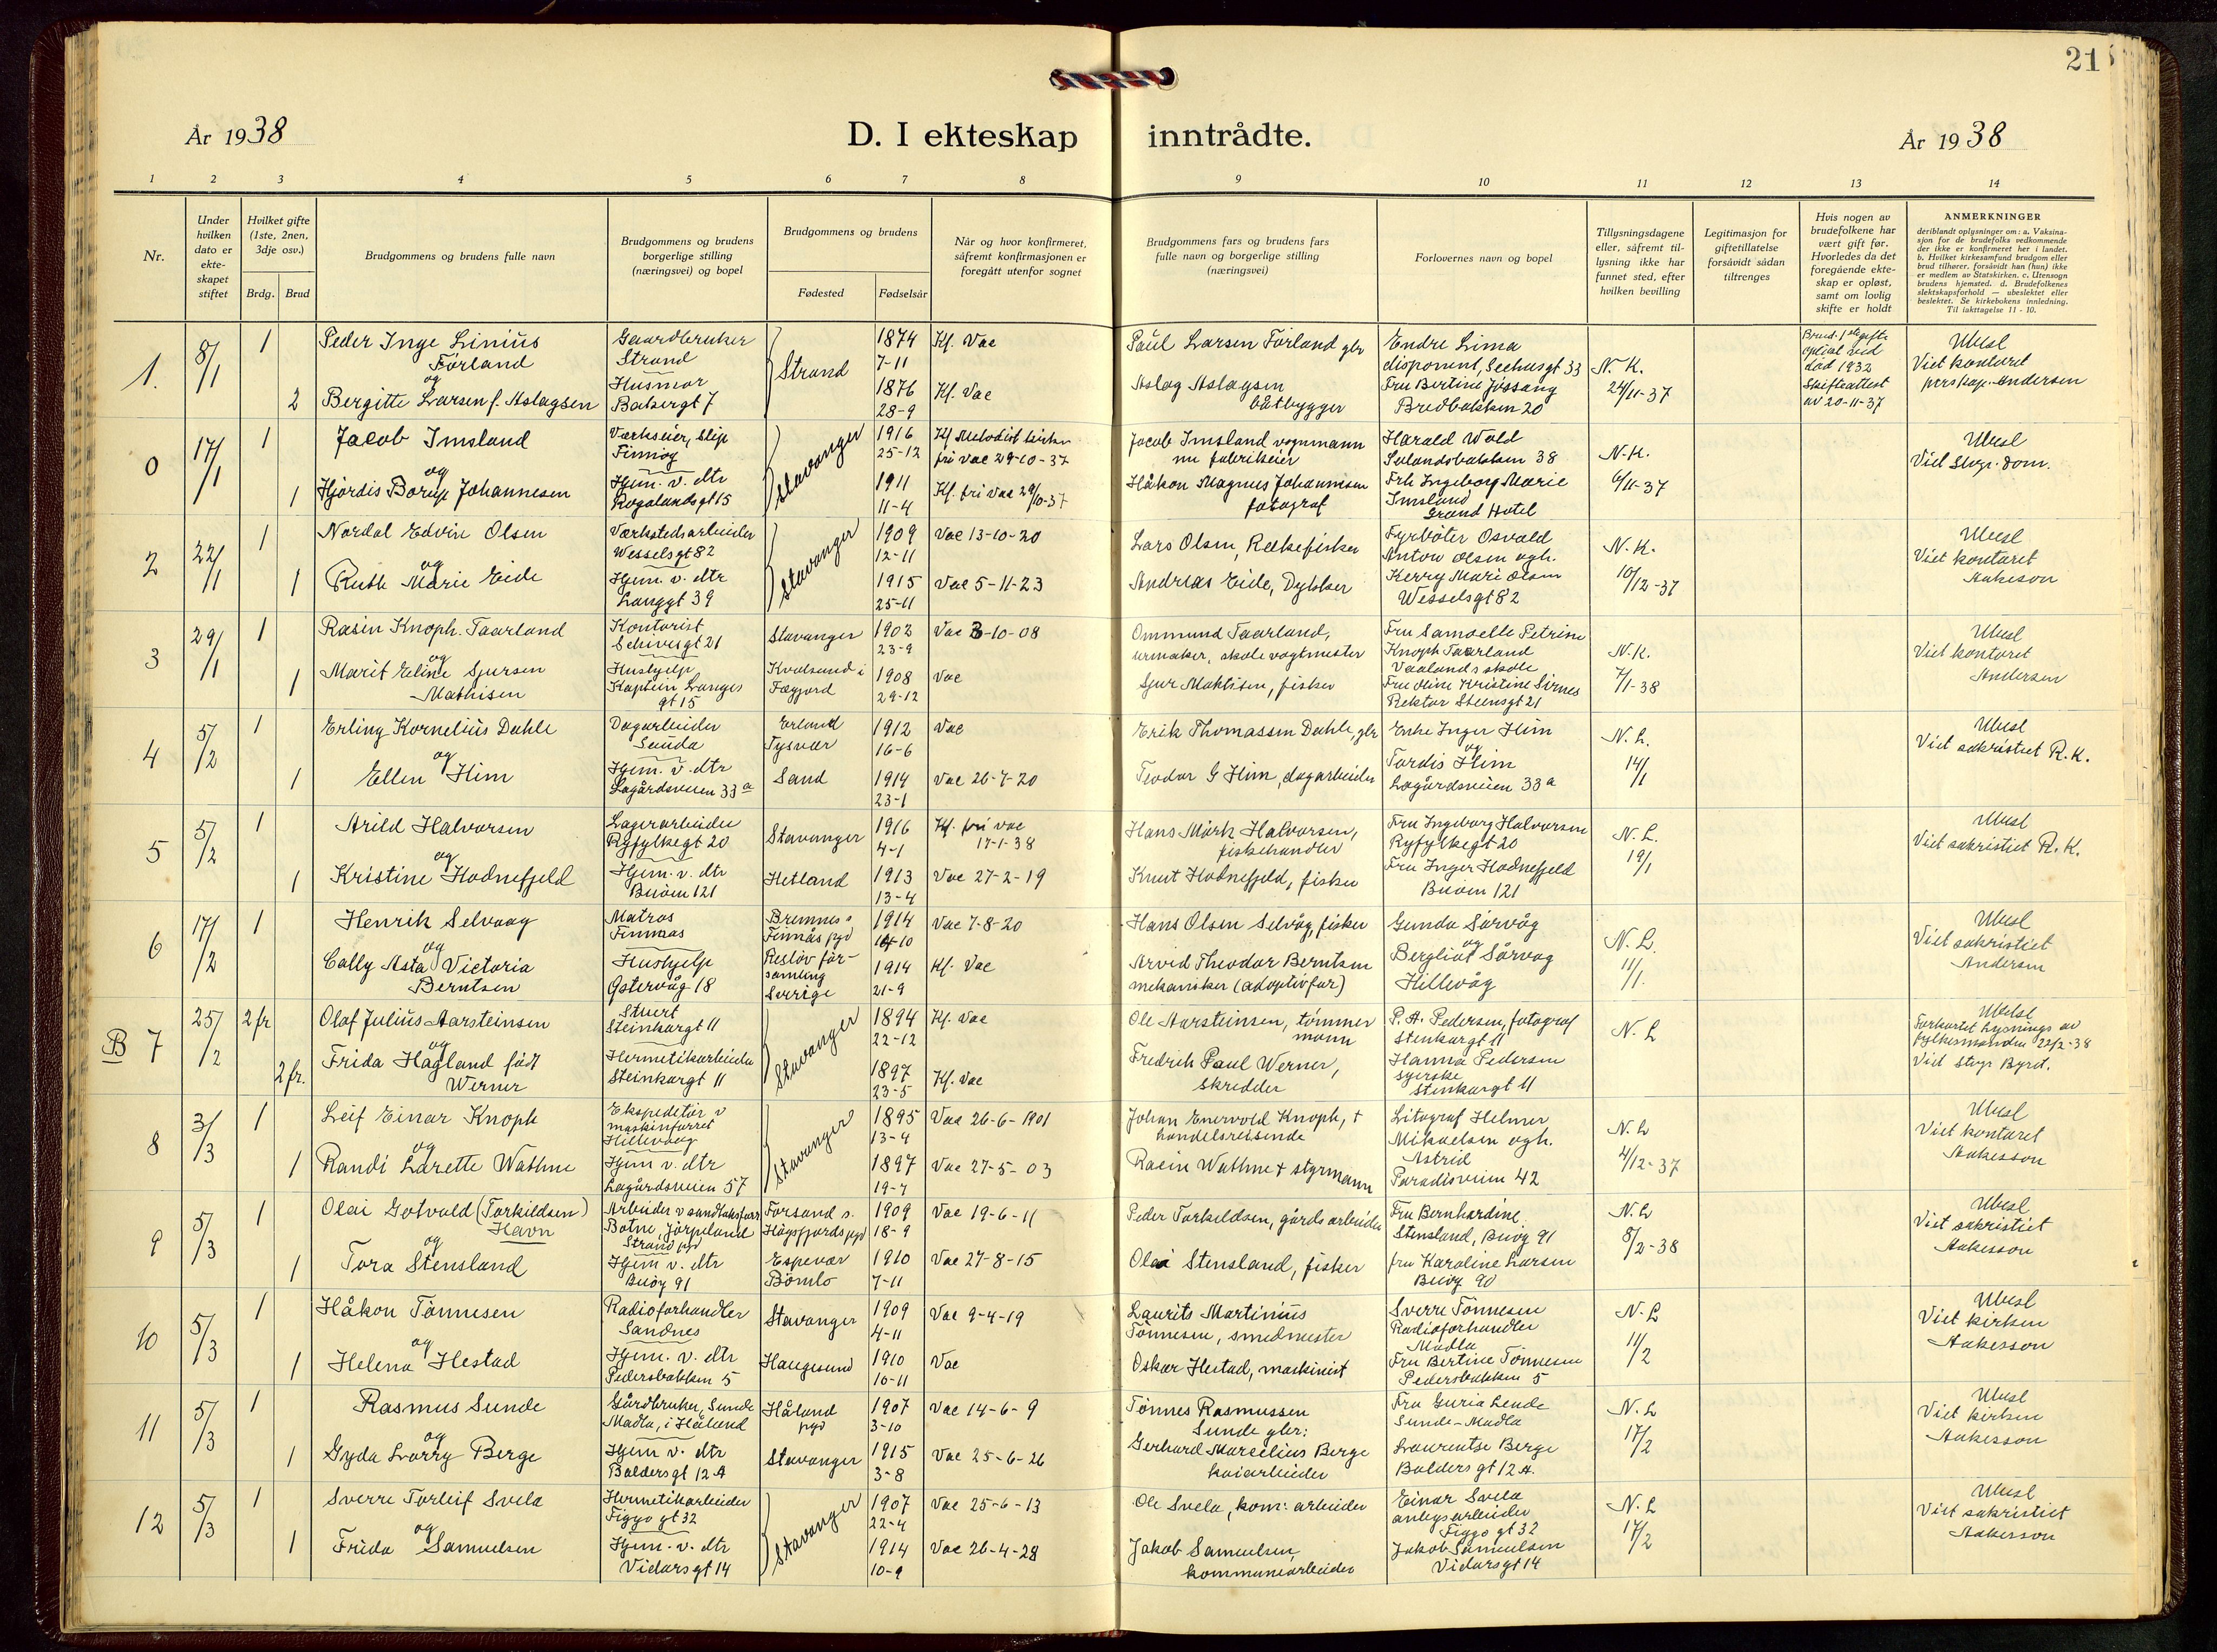 21
År 1938
D. I ekteskap inntrådte.
År 1938
1 2 3 4 5 6 7 8 9 10 11 12 13 14
Nr.
Under hvilken dato er ekte-skapet stiftet
Hvilket gifte (1ste, 2nen, 3dje osv.)
Brdg. Brud
Brudgommens og brudens fulle navn
Brudgommens og brudens borgerlige stilling (næringsvei) og bopel
Brudgommens og brudens
Fødested Fødselsår
Når og hvor konfirmeret, såfremt konfirmasjonen er foregått utenfor sognet
Brudgommens fars og brudens fars fulle navn og borgerlige stilling (næringsvei)
Forlovernes navn og bopel
Tillysningsdagene eller, såfremt til-lysning ikke har funnet sted, efter hvilken bevilling
Legitimasjon for giftetillatelse forsåvidt sådan tiltrenges
Hvis nogen av brudefolkene har vært gift før. Hvorledes da det foregående ekte-skap er opløst, samt om lovlig skifte er holdt
ANMERKNINGER
deriblandt oplysninger om: a. Vaksina-sjon for de brudefolks vedkommende der ikke er konfirmeret her i landet. b. Hvilket kirkesamfund brudgom eller brud tilhører, forsåvidt han (hun) ikke er medlem av Statskirken. c. Utensogn brudens hjemsted. d. Brudefolkenes slektskapsforhold — ubeslektet eller beslektet. Se kirkebokens innledning. Til iakttagelse 11 - 10.
1. 8/1 1 Peder Inge Linius Förland
Gaardbruker Strand
Strand
1874 7-11 Kf. Vac
Paul Larsen Förland gbr
Endre Lima disponent, Seehusgt 33
N. K. 24/11-37
Brud. 1ste gifte opløst ved död 1932 Skifteattest av 20-11-37
Ubesl Viet kontoret pers kap. Andersen
og
2 Bergitte Larsen f. Aslagsen
Husmor Bakergt 7
1876 28-9 Kf. Vac
Aslag Aslagsen båtbygger
Fru Bertine Jössang Bredbakken 20
0 17/1 1 Jacob Imsland
Værkseier, Slip Finnøy
Stavanger
1916 25-12 Kf Metodist kirken fri vac 29-10-37
Jacob Imsland vognmann nu fabrikeier
Harald Wold Sulandsbakken 38
N. K. 6/11-37
Ubesl Viet Sogn. dom.
og
1 Hjördis Borup Johannesen
Hjem. v. dtr Rogalandsgt 15
1911 11-4 Kf. fri vac 29/10-37
Håkon Magnus Johannesen fotograf
Frk Ingeborg Marie Imsland Grand Hotel
2 22/1 1 Nordal Edvin Olsen
Værkstedsarbeider Wesselsgt 82
Stavanger
1909 12-11 Vac 13-10-20
Lars Olsen, Rekefisker
Fyrböter Osvald Anton Olsen ogh.
N. K. 10/12-37
Ubesl Viet kontoret Aakeson
og
1 Ruth Marie Eide
Hjem. v. dtr Langgt 39
1915 25-11 Vac 5-11-23
Andreas Eide, Dykker
Kerry Marie Olsen Wesselsgt 82
3 29/1 1 Rasin Knoph. Taarland
Kontorist Schivesgt 21
Stavanger
1902 23-9 Vac 3-10-08
Ommund Taarland, urmaker, skole vogtmester
Fru Samoelle Petrine Knoph Taarland Vaalands skole
N. K. 7/1-38
Ubesl Viet kontoret Andersen
og
1 Marit Eline Sjursen Mathisen
Hushjelp Kaptein Langes gt 15
Kvalsund i
1908 29-12 Vac
Sjur Mathisen, fisker
Fru Oline Kristine Sirnes Rektor Steensgt 21
4 5/2 1 Erling Kornelius Dahle
Dagarbeider Sauda
Erland Tysvær
1912 16-6 Vac
Erik Thomassen Dahle, gbr
Enke Inger Him
N. L. 14/1
Ubesl Viet sakristiet R. K.
og
1 Ellen Him
Hjem. v. dtr Lagårdsveien 33 a
Sand
1914 23-1 Vac 26-7-20
Teodor G Him, dagarbeider
og Tordis Him Lagårdsveien 33 a
5 5/2 1 Arild Halvorsen
Lagerarbeider Ryfylkegt 20
Stavanger
1916 4-1 Kf. fri vac 17-1-38
Hans Mörk Halvorsen, fiskehandler
Fru Ingeborg Halvorsen Ryfylkegt 20
N. L. 19/1
Ubesl Viet sakristiet R. K.
og
1 Kristine Hodnefjeld
Hjem. v. dtr Buöen 121
Hetland
1913 13-4 Vac 27-2-19
Knut Hodnefjeld, fisker
Fru Inger Hodnefjeld Buöen 121
6 17/2 1 Henrik Selvaag
Matros Finnaas
Bremnes s Finnås pgd
1914 10 Vac 7-8-20
Hans Olsen Selvåg, fisker
Gunda Sörvåg
N. L. 11/1.
Ubesl Viet sakristiet Andersen
og
Cally Asta Victoria Berntsen
Hushjelp Østervåg 18
Reslöv för-samling Sverige
1914 21-9 Kf. Vac
Arvid Theodor Berntsen mekaniker (adoptivfar)
og Bergliot Sörvag Hillevåg
B 7 25/2 2 fr Olaf Julius Aarsteinsen
Stuert Steinkargt 11
Stavanger
1894 22-12 Kf. Vac
Ole Aarsteinsen, tömmer mann
P. A. Pedersen, fotograf Stenkargt 11
N. L
Ubesl Forkortet lysnings av fylkesmanden 22/2-38 Viet Sogn Byrd.
og
2 fr. Frida Hagland född Werner
Hermetikarbeider Steinkargt 11
1897 23-5 Kf. Vac
Fredrik Paul Werner, skredder
Hanna Pedersen syerske Stenkargt 11
8 3/3 1 Leif Einar Knoph
Ekspeditör v maskinforret Hillevaag
Stavanger
1895 13-4 Vac 26-6-1901
Johan Enervold Knoph, † handelsreisende
Litograf Helmer Mikaelsen ogh.
N. L 4/12-37
Ubesl Viet kontoret Aakesson
og
1 Randi Lorette Wathne
Hjem v. dtr Lagårdsveien 57
1897 19-7 Vac 27-5-03
Rasin Wathne † styrmann
Astrid Paradisveien 42
9 5/3 1 Olai Gotvald (Torkildsen) Havn
Arbeider v Botne, Jörpeland Strand pgd
Forsand s. Högsfjords pgd
1909 18-9 Vac 19-6-11
Peder Torkeldsen, gårdsarbeider
Fru Bernhardine Stensland, Buøy 91
N. L 8/2-38
Ubesl Viet sakristiet Aakesson
og
1 Tora Stensland
Hjem v. dtr Buöy 91
Espevær Bömlo
1910 7-11 Vac 27-8-15
Olai Stensland, fisker
fru Karoline Larsen Buöy 90
10 5/3 1 Håkon Tönnesen
Radioforhandler Sandnes
Stavanger
1909 4-11 Vac 9-4-19
Laurits Martinius Tönnesen, smedmester
Sverre Tönnesen Radioforhandler Madla
N. L 11/2
Ubesl Viet kirken Aakesson
og
1 Helena Hestad
Hjem. v. dtr Pedersbakken 5
Haugesund
1910 10-11 Vac
Oskar Hestad, maskinist
Fru Bertine Tönnesen Pedersbakken 5
11 5/3 1 Rasmus Sunde
Gårdbruker, Sunde Madla, i Håland
Håland pgd
1907 3-10 Vac 14-6-9
Tönnes Rasmussen Sunde gbr:
Fru Guria Lende Sunde-Madla
N. L 17/2
Ubesl Viet kirken Aakesson
og
1 Gyda Lorry Berge
Hjem v. dtr Baldersgt 12 A
Stavanger
1915 3-8 Vac 25-6-26
Gerhard Marselius Berge kaiarbeider
Laurentse Berge Balders gt 12 A.
12 5/3 1 Sverre Torleif Svela
Hermetikarbeider Figgo gt 32
Stavanger
1907 22-4 Vac 25-6-13
Ole Svela, kom: arbeider
Einar Svela anlegsarbeider Figgo gt 32
N. L 17/2
Ubesl Viet sakristiet Aakesson
og
1 Frida Samuelsen
Hjem. v. dtr Vidarsgt 14
1914 10-9 Vac 26-4-28
Jakob Samuelsen, kommunearbeider
Jakob Samuelsen Vidarsgt 14